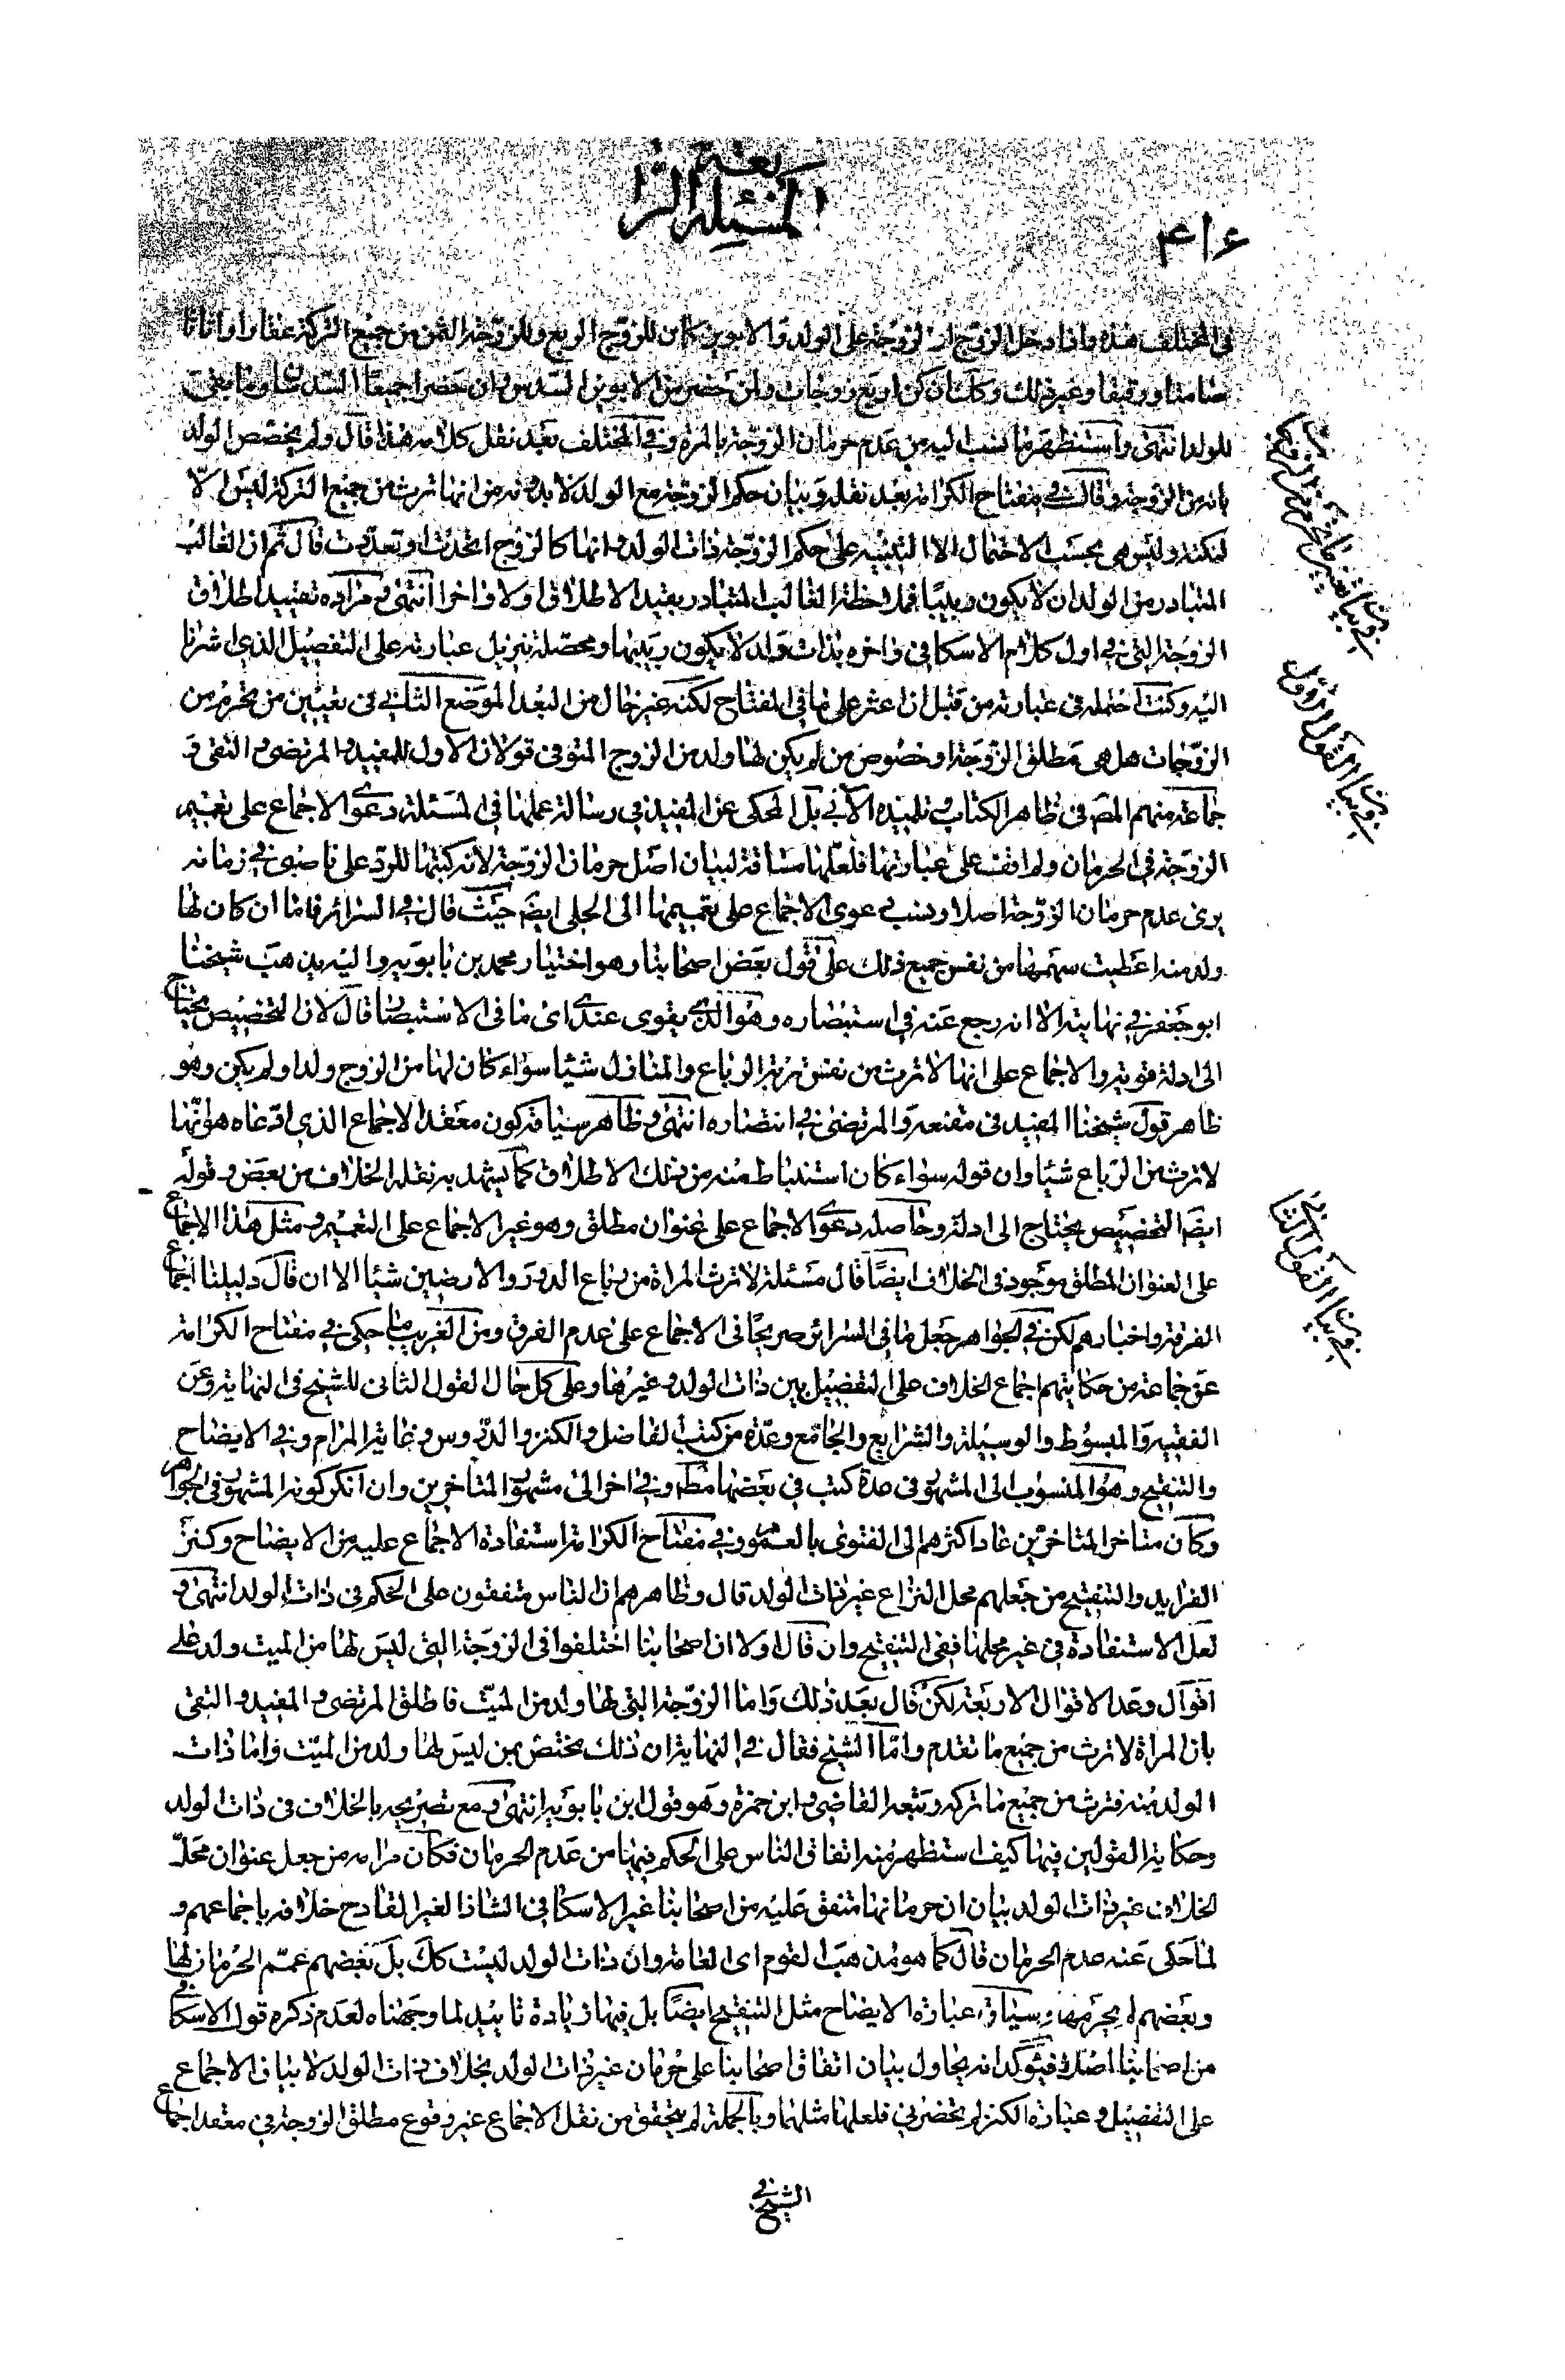 بقية
المسئلة الرا
۴۱۶
في المختلف هذه واذا دخل الزوج او الزوجة على الولد والابوين كان للزوج الربع وللزوجة الثمن من جميع التركة عقارا او اثاثا
صامتا ورقيقا وغير ذلك وكك ان كن اربع زوجات ولمن حضر من الابوين السدس وان حضرا جميعا السدسان وما بقى
للولد انتهى واستظهر ما نسب اليه من عدم حرمان الزوجة بالمرة وفي المختلف بعد نقل كلامه هذا قال ولم يخصص الولد
بانه من الزوجة وقال في مفتاح الكرامة بعد نقله وبيان حكم الزوجة مع الولد لا بد وانها ترث من جميع التركة ليس الا
لنكتة وليس هي بحسب الاحتمال الا التنبيه على حكم الزوجة ذات الولد وانها كالزوج اتحدت او تعددت قال ثم ان الغالب
المتبادر من الولد ان لا يكون ربيبا فملاحظة الغالب المتبادر يقيد الاطلاق اولا واخرا انتهى ومراده تقييد اطلاق
الزوجة التي في اول كلام الاسكافي واخره بذات ولد لا يكون ربيبها ومحصله تنزيل عبارته على التفصيل الذي اشرنا
اليه وكنت احتمله في عبارته من قبل ان اعثر على ما في المفتاح لكنه غير خال من البعد الموضع الثاني في تعيين من يحرم من
الزوجات هل هي مطلق الزوجة او خصوص من لم يكن لها ولد من الزوج المتوفى قولان الاول للمفيد والمرتضى والتقى و
جماعة منهم المصـ في ظاهر الكتاب وتلميذه الآبي بل المحكى عن المفيد في رسالة عملها في المسئلة دعوى الاجماع على تعميم
الزوجة في الحرمان ولم اقف على عبارتها فلعلها مساقة لبيان اصل حرمان الزوجة لانه كتبها للرد على ناصبى في زمانه
يرى عدم حرمان الزوجة اصلا ونسب دعوى الاجماع على تعميمها الى الحلى ايضا حيث قال في السرائر فاما ان كان لها
ولد منه اعطيت سهمها من نفس جميع ذلك على قول بعض اصحابنا وهو اختيار محمد بن بابويه واليه يذهب شيخنا
ابو جعفر في نهايته الا انه رجع عنه في استبصاره وهو الذي يقوى عندي اى ما في الاستبصار قال لان التخصيص يحتاج
الى ادلة قوية والاجماع على انها لا ترث من نفس تربة الرباع والمنازل شيئا سواء كان لها من الزوج ولد او لم يكن وهو
ظاهر قول شيخنا المفيد في مقنعه والمرتضى في انتصاره انتهى وظاهر سياقه كون معقد الاجماع الذي ادعاه هو انها
لا ترث من الرباع شيئا وان قوله سواء كان استنباط منه من ذلك الاطلاق كما يشهد به نقله الخلاف من بعض وقوله
ايضا التخصيص يحتاج الى ادلة وحاصله دعوى الاجماع على عنوان مطلق وهو غير الاجماع على التعميم ومثل هذا الاجماع
على العنوان المطلق موجود في الخلاف ايضا قال مسئلة لا ترث المراة من رباع الدور والارضين شيئا الا ان قال دليلنا اجماع
الفرقة واخبارهم لكن في الجواهر جعل ما في السرائر صريحا في الاجماع على عدم الفرق ومن الغريب ما حكى في مفتاح الكرامة
عن جماعة من حكايتهم اجماع الخلاف على التفصيل بين ذات الولد وغيرها وعلى كل حال القول الثاني للشيخ في النهاية وعن
الفقيه والمبسوط والوسيلة والشرايع والجامع وعدة من كتب الفاضل والكنز والدروس وغاية المرام وفي الايضاح
والتنقيح وهو المنسوب الى المشهور في عدة كتب في بعضها مطـ وفي اخر الى مشهور المتاخرين وان انكر كونه المشهور في الجواهر
وكان متاخر المتاخرين عاد اكثرهم الى الفتوى بالعموم وفي مفتاح الكرامة استفادة الاجماع عليه من الايضاح وكنز
الفرايد والتنقيح من جعلهم محل النزاع غير ذات الولد قال وظاهرهم ان الناس متفقون على الحكم في ذات الولد انتهى و
لعل الاستفادة في غير محلها ففي التنقيح وان قال اولا ان اصحابنا اختلفوا في الزوجة التي ليس لها من الميت ولد على
اقوال وعد الاقوال الاربعة لكن قال بعد ذلك واما الزوجة التي لها ولد من الميت فاطلق المرتضى والمفيد والتقى
بان المراة لا ترث من جميع ما تقدم واما الشيخ فقال في النهاية ان ذلك مختص بمن ليس لها ولد من الميت واما ذات
الولد منه فترث من جميع ما تركه وتبعه القاضى وابن حمزة وهو قول ابن بابويه انتهى ومع تصريحه بالخلاف في ذات الولد
وحكاية القولين فيها كيف استظهر منه اتفاق الناس على الحكم فيها من عدم الحرمان فكان مرامه من جعل عنوان محل
الخلاف غير ذات الولد بيان ان حرمانها متفق عليه من اصحابنا غير الاسكافي الشاذ الغير القادح خلافه باجماعهم و
لما حكى عنه عدم الحرمان قال كما هو مذهب القوم اى العامة وان ذات الولد ليست كك بل بعضهم عمم الحرمان لها
وبعضهم لم يحرمها وسياق عبارة الايضاح مثل التنقيح ايضا بل فيها زيادة تاييد لما وجهناه لعدم ذكره قول الاسكافي
من اصحابنا اصلا فيتوكد انه يحاول بيان اتفاق اصحابنا على حرمان غير ذات الولد بخلاف ذات الولد لا بيان الاجماع
على التفصيل وعبارة الكنز لم يحضرني فلعلها مثلهما وبالجملة لم يتحقق من نقل الاجماع غير وقوع مطلق الزوجة في معقد اجماع
الشيخ في
في بيان القول الاول
في بيان القول الثاني